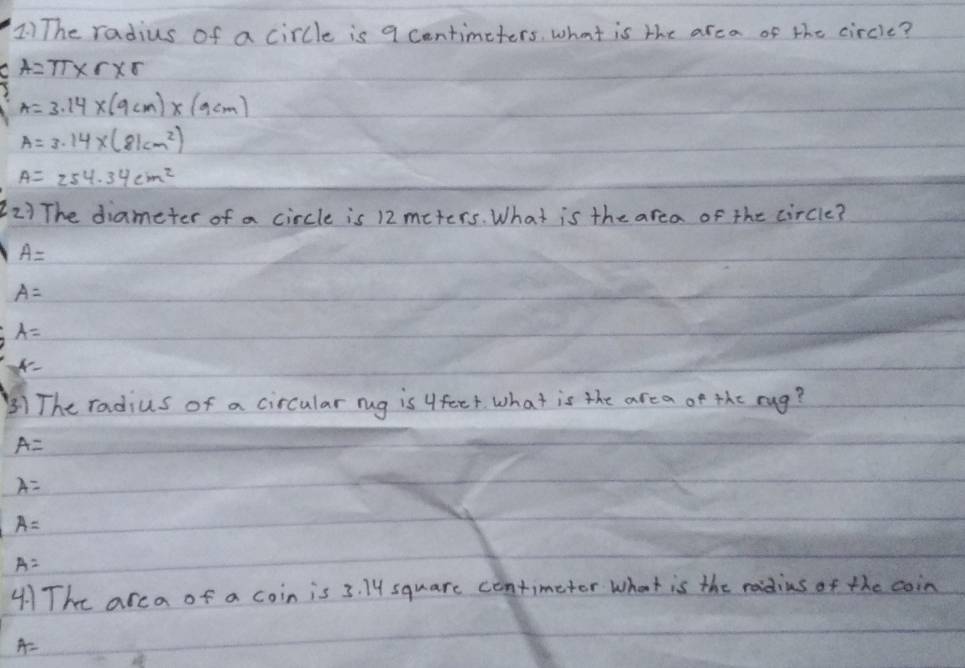 1.) The radius of a circle is 9 centimeters. what is the area of the circle?
A=π×r×r
A=3.14×(9cm)×(9cm)
A=3.14×(81cm²)
A= 254.34cm²
2.) The diameter of a circle is 12 meters. What is the area of the circle?
A=
A=
A=
A=
3.) The radius of a circular rug is 4 feet. what is the area of the rug?
A=
A=
A=
A=
4.) The area of a coin is 3.14 square centimeter What is the radius of the coin
A=